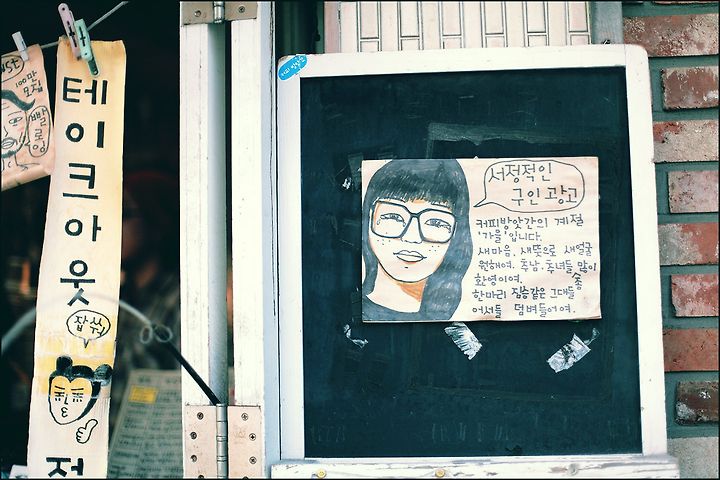 100만
모집
빨
로
잉
테이크아웃
잡쒀
서정적인
구인광고
커피방앗간의 계절
'가을'입니다.
새마음, 새뜻으로 새얼굴
원해여. 추남, 추녀들 많이
환영이여.
한마리 짐승같은 그대들
어서들 덤벼들어여.